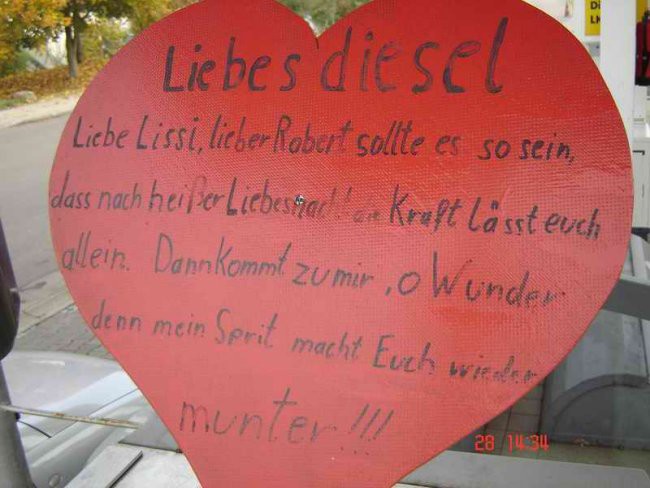 Liebesdiesel
Liebe Lissi, lieber Robert sollte es so sein,
dass nach heißer Liebesnacht die Kraft Lässt euch
allein. Dann Kommt zu mir , O Wunder
denn mein Sprit macht Euch wieder
munter!!!
Di
LK
28 14:34